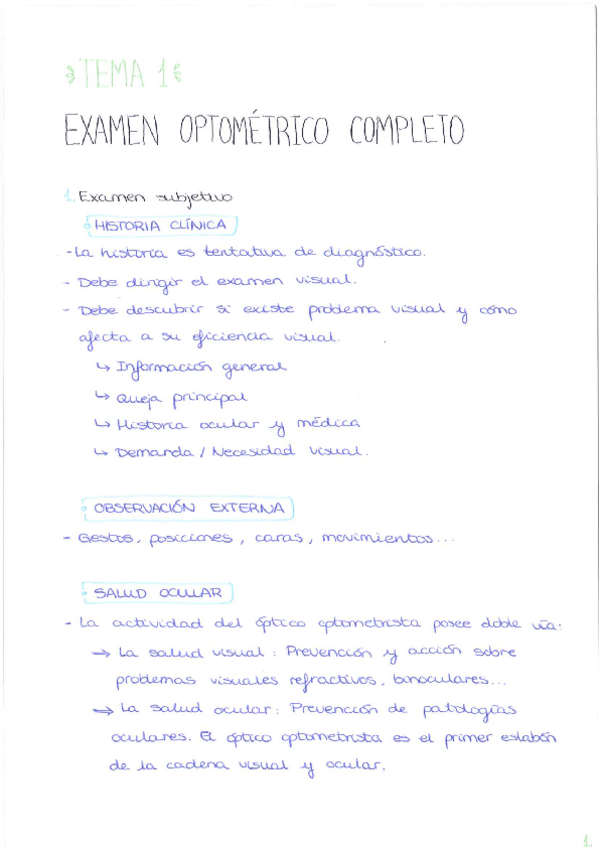 TEMA 1
EXAMEN OPTOMÉTRICO COMPLETO
1. Examen subjetivo
HISTORIA CLÍNICA
- La historia es tentativa de diagnóstico.
- Debe dirigir el examen visual.
- Debe descubrir si existe problema visual y cómo
afecta a su eficiencia visual.
↳ Información general
↳ Queja principal
↳ Historia ocular y médica
↳ Demanda / Necesidad visual.
OBSERVACIÓN EXTERNA
- Gestos, posiciones, caras, movimientos...
SALUD OCULAR
- La actividad del óptico optometrista posee doble vía:
→ La salud visual: Prevención y acción sobre
problemas visuales refractivos, binoculares...
→ La salud ocular: Prevención de patologías
oculares. El óptico optometrista es el primer eslabón
de la cadena visual y ocular.
1.